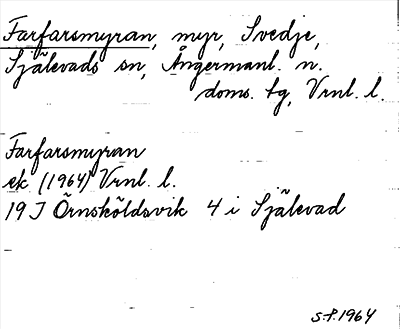 Farfarsmyran, myr, Svedje,
Själevads sn, Ångermanl. n.
doms. tg, Vrnl. l.
Farfarsmyran
ek (1964) Vrnl. l.
19 J Örnsköldsvik 4 i Själevad
S.P. 1964